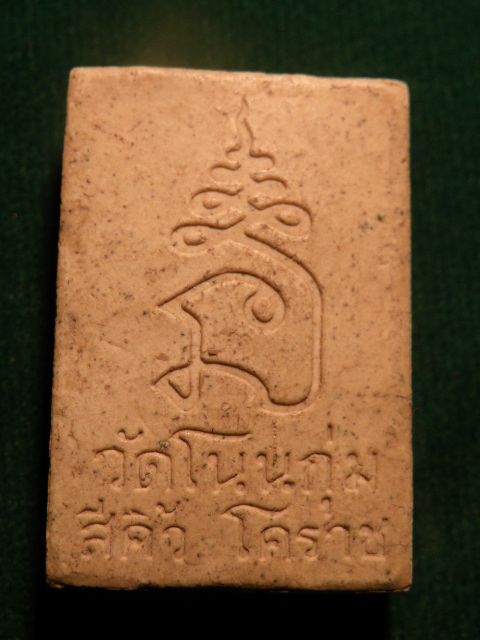 วัดโนนกุ่ม
สีคิ้ว โคราช